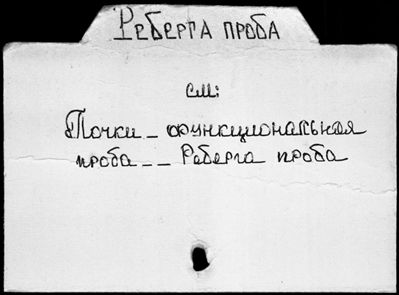 Реберга проба
см:
Точки – функциональная
проба – – Реберга проба